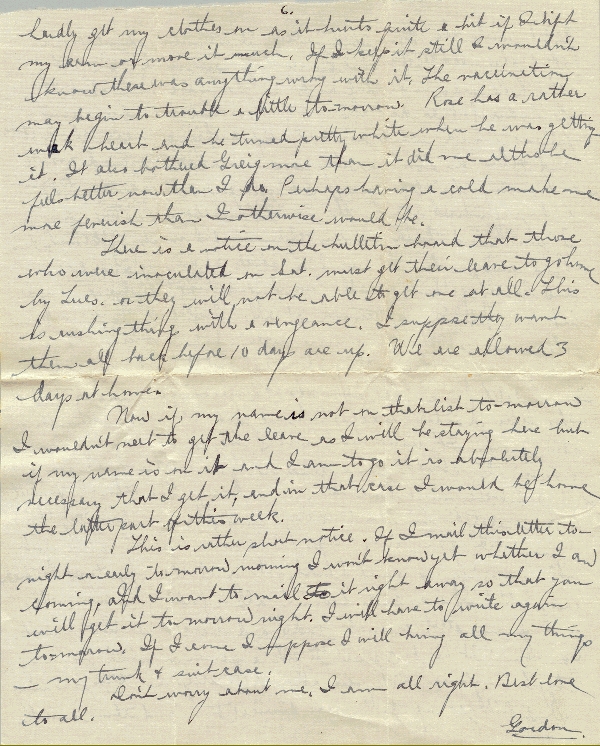 6.
hardly get my clothes on as it hurts quite a bit if I lift
my arm or move it much. If I keep it still I wouldn't
know there was anything wrong with it. The vaccination
may begin to trouble a little to-morrow. Rose has a rather
weak heart and he turned pretty white when he was getting
it. It also bothered Greig more than it did me altho he
feels better now than I do. Perhaps having a cold make me
more feverish than I otherwise would be.
There is a notice on the bulletin board that those
who were inoculated on Sat. must get their leave to go home
by Tues. or they will not be able to get one at all. This
is rushing things with a vengeance. I suppose they want
them all back before 10 days are up. We are allowed 3
days at home.
Now if my name is not on that list to-morrow
I wouldn't want to get the leave as I will be staying here but
if my name is on it and I am to go it is absolutely
necessary that I get it, and in that case I would be home
the latter part of this week.
This is rather short notice. If I mail this letter to-
night or early to-morrow morning I won't know yet whether I am
coming, and I want to mail it right away so that you
will get it to-morrow night. I will have to write again
to-morrow. If I come I suppose I will bring all my things
— my trunk & suit case.
Don't worry about me. I am all right. Best love
to all.
Gordon.